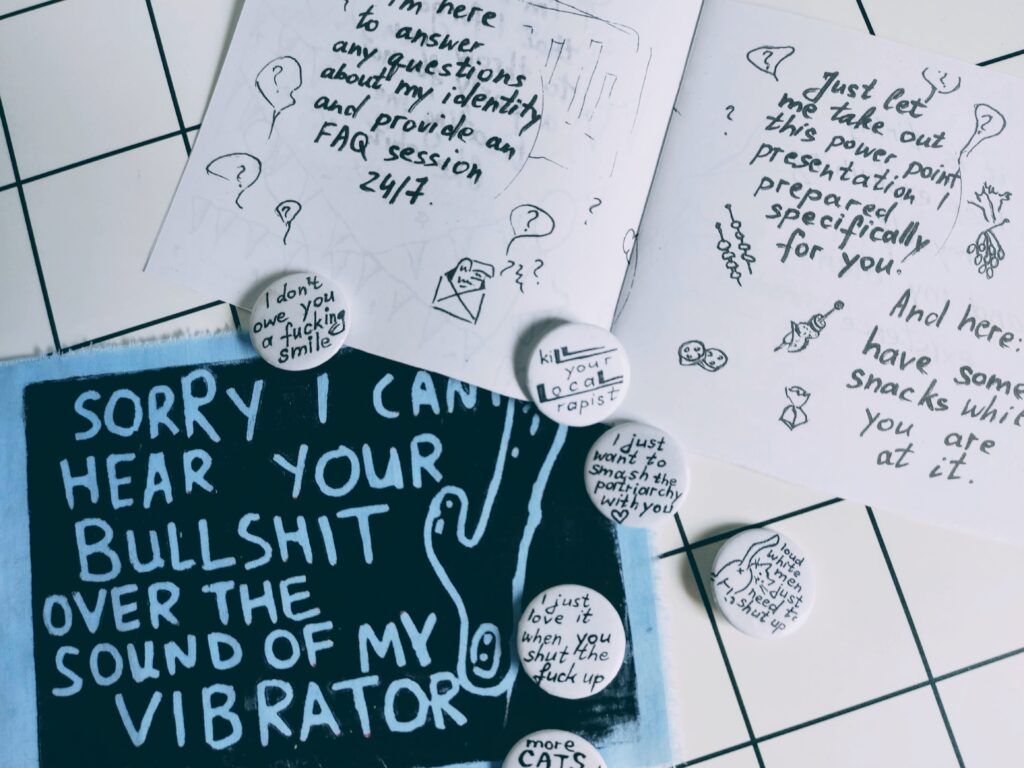 I'm here
to answer
any questions
about my identity
and provide an
FAQ session
24/7.
Just let
me take out
this power point
presentation I
prepared
specifically
for you.
And here:
have some
snacks
you are
at it.
I don't
owe you
a fucking
smile
kill
your
local
rapist
I just
want to
smash the
patriarchy
with you
loud
white
men
just
need to
shut up
I just
love it
when you
shut the
fuck up
more
CATS
SORRY I CAN'T
HEAR YOUR
BULLSHIT
OVER THE
SOUND OF MY
VIBRATOR